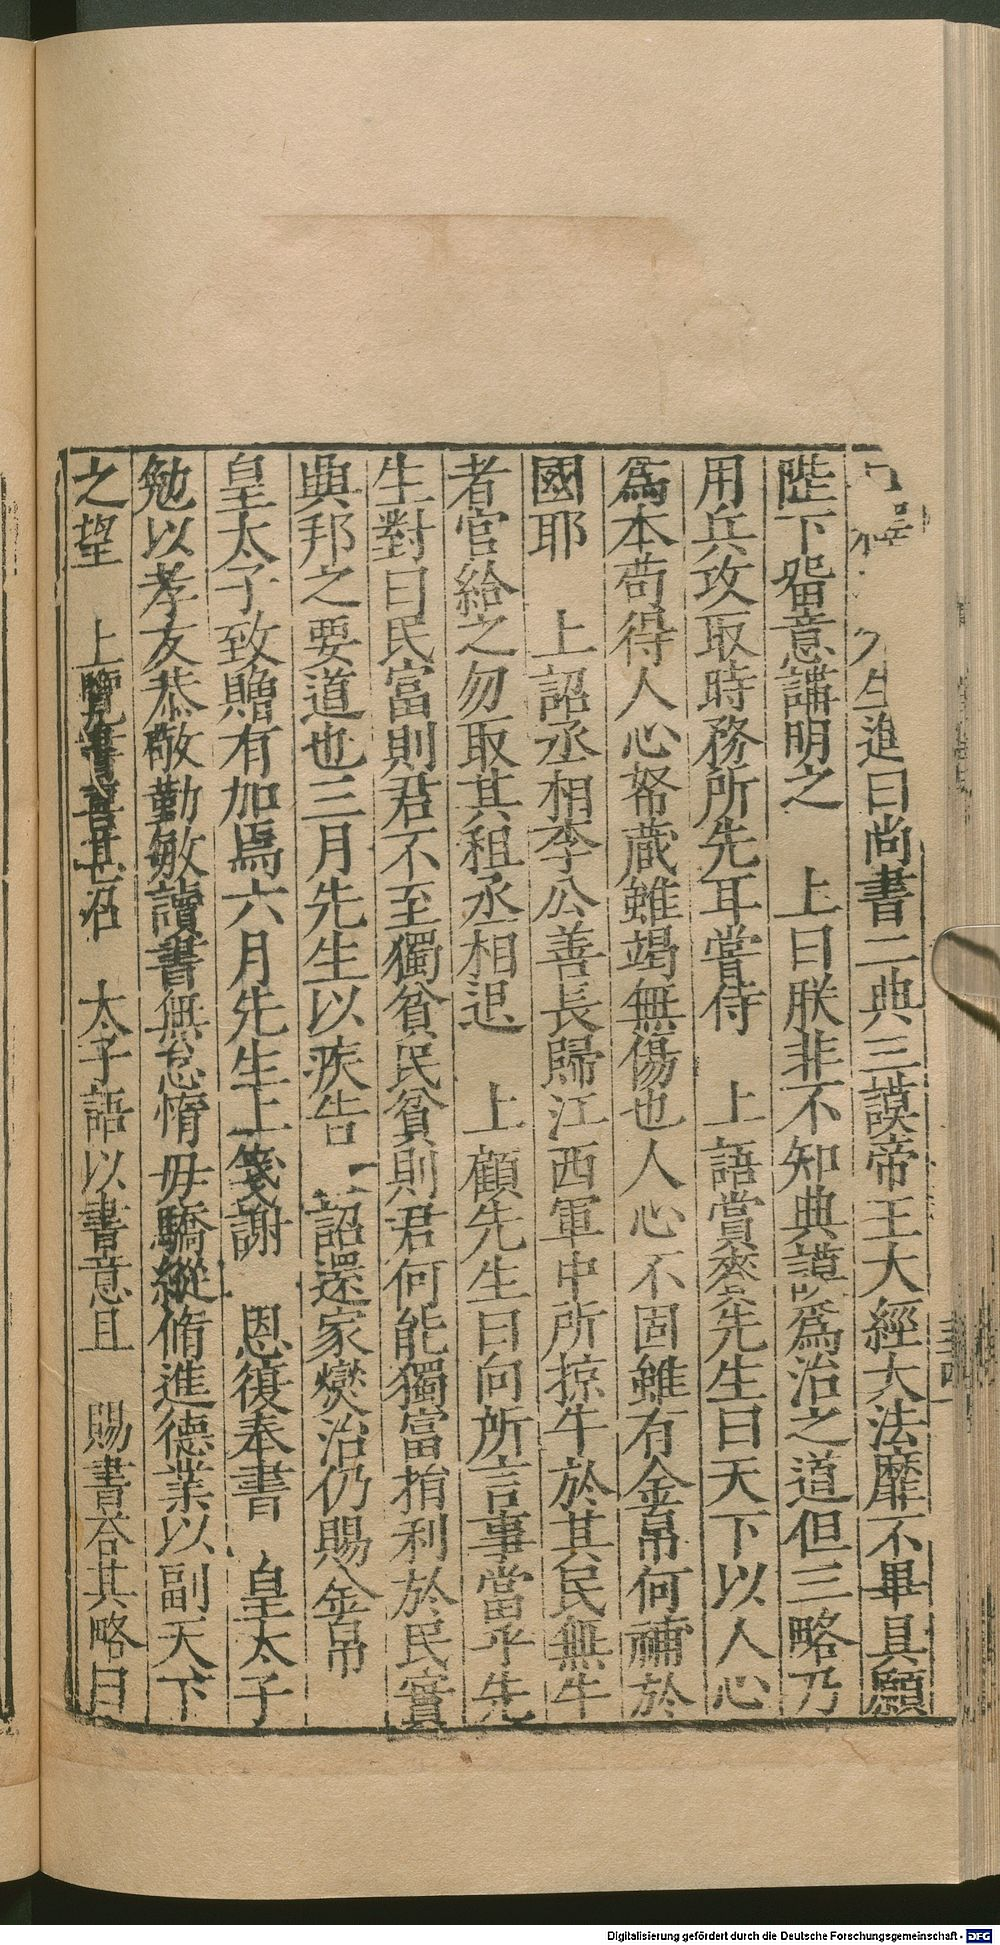 生進曰尚書二典三謨帝王大經大法靡不畢具願
陛下畱意講明之　上曰朕非不知典謨爲治之道但三略乃
用兵攻取時務所先耳嘗侍　上語賞賚先生曰天下以人心
爲本苟得人心帑藏雖竭無傷也人心不固雖有金帛何補於
國耶　上詔丞相李公善長歸江西軍中所掠牛於其民無牛
者官給之勿取其租丞相退　上顧先生曰向所言事當乎先
生對曰民富則君不至獨貧民貧則君何能獨富捐利於民實
興邦之要道也三月先生以疾告　詔還家燮治仍賜金帛
皇太子致贈有加焉六月先生上箋謝　恩復奉書　皇太子
勉以孝友恭敬勤敏讀書無怠惰毋驕縱脩進德業以副天下
之望　上覽書喜甚召　太子語以書意且　賜書荅其略曰
Digitalisierung gefördert durch die Deutsche Forschungsgemeinschaft - DFG